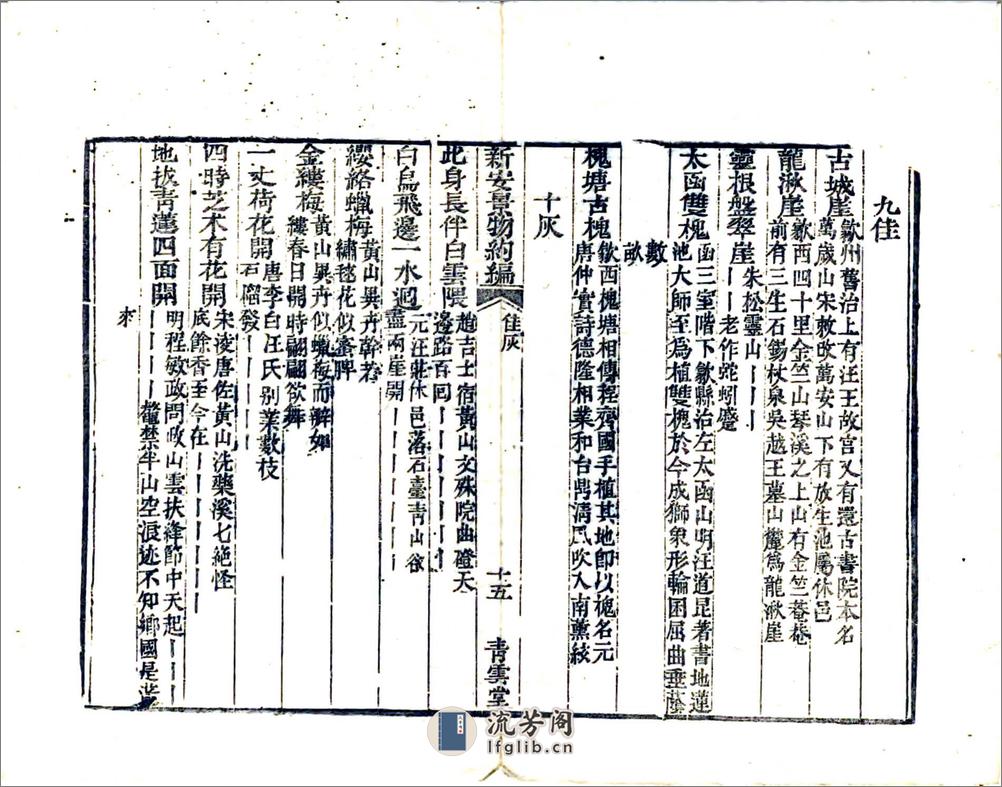 九佳
古城崖
歙州舊治上有汪王故宮又有還古書院本名
萬歲山宋敕改萬安山下有放生池屬休邑
龍湫崖
歙西四十里金竺山琴溪之上山有金竺菴菴
前有三生石錫杖泉吳越王墓山麓爲龍湫崖
靈根盤翠崖
朱松靈山丨丨丨
丨丨老作蛇蚓蹙
太函雙槐
函三室階下歙縣治左太函山明汪道昆著書地蓮
池大師至爲植雙槐於今成獅象形輪囷屈曲垂蔭
數
畝
槐塘古槐
歙西槐塘相傳程齊國手植其地卽以槐名元
唐仲實詩德隆相業和台鼎淸風吹入南薰絃
十灰
新安景物約編
佳灰
十五
青雲堂
此身長伴白雲隈
趙吉士宿黃山文殊院曲磴天
邊路百回丨丨丨丨丨丨丨
白鳥飛邊一水迴
元汪莊休邑落石臺靑山谷
盡兩崖開丨丨丨丨丨丨丨
纓絡蠟梅
黃山異卉幹若
繡毬花似蜜脾
金縷梅
黃山異卉似蠟梅而瓣如
縷春日開時翩翩欲舞
一丈荷花開
唐李白汪氏別業數枝
石榴發丨丨丨丨丨
四時芝术有花開
宋凌唐佐黃山洗藥溪七絕怪
底餘香至今在丨丨丨丨丨丨丨
地拔靑蓮四面開
明程敏政問政山雲扶絳節中天起丨丨丨
丨丨丨丨鼇禁半山空浪迹不知鄉國是蓬
來
流芳阁
lfglib.cn